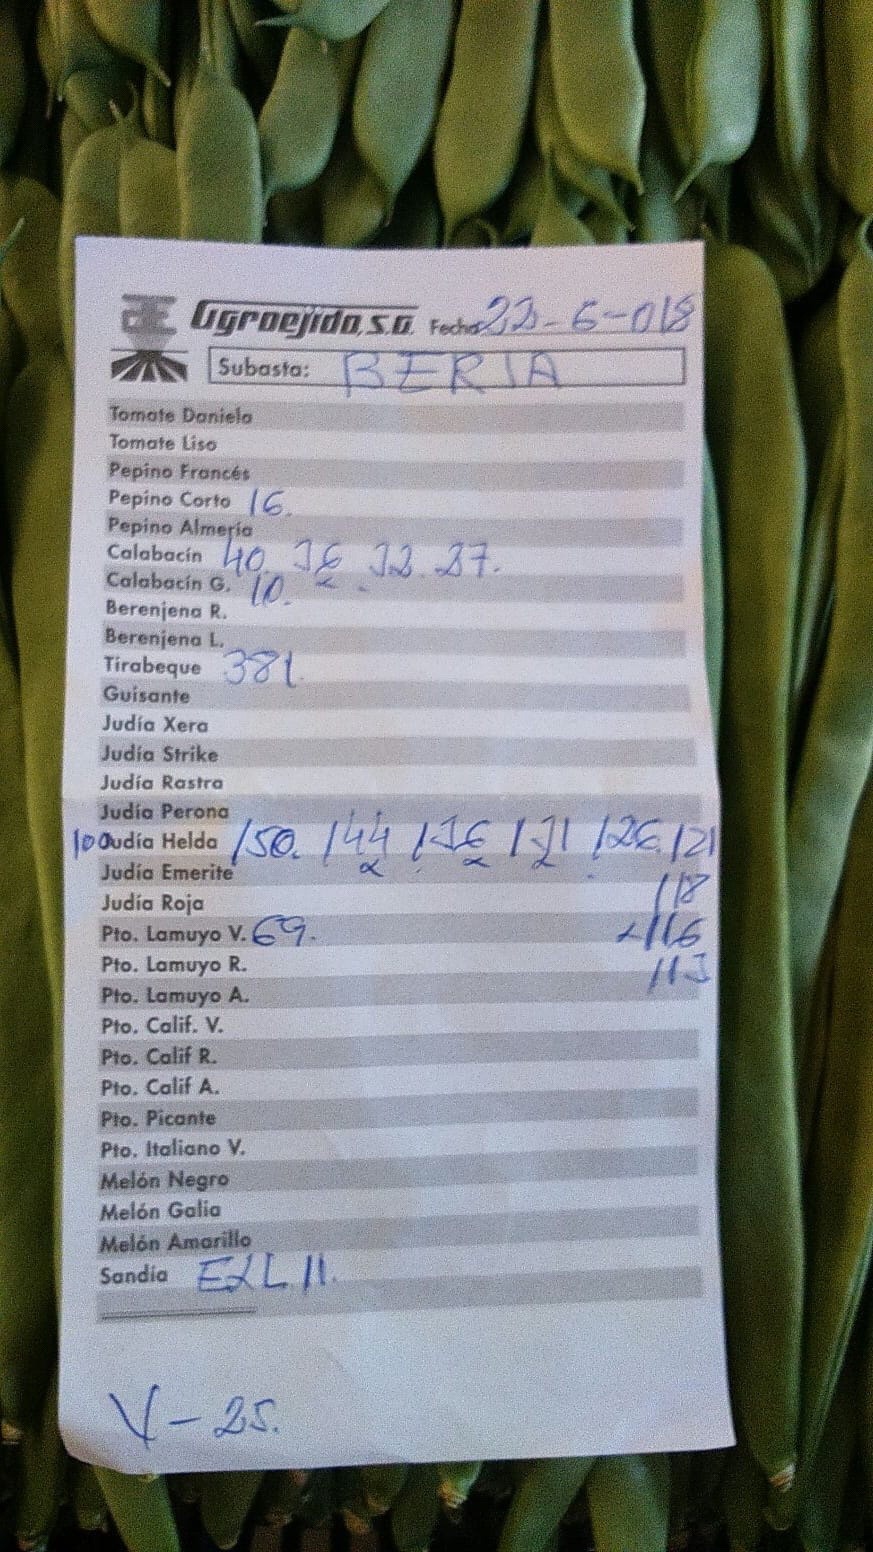 Agroejido, S.A. Fecha 22-6-018
Subasta: BERJA
Tomate Daniela
Tomate Liso
Pepino Francés
Pepino Corto 16.
Pepino Almería
Calabacín 40. 36. 32. 27.
Calabacín G. 10.
Berenjena R.
Berenjena L.
Tirabeque 381.
Guisante
Judía Xera
Judía Strike
Judía Rastra
Judía Perona
100 Judía Helda 150. 144 136 131 126. 121
Judía Emerite 118
Judía Roja
Pto. Lamuyo V. 69. 116
Pto. Lamuyo R. 113
Pto. Lamuyo A.
Pto. Calif. V.
Pto. Calif R.
Pto. Calif A.
Pto. Picante
Pto. Italiano V.
Melón Negro
Melón Galia
Melón Amarillo
Sandía 11.
V - 25.